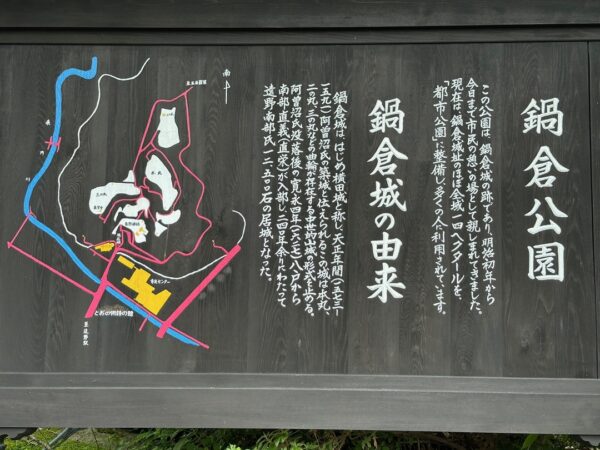 鍋倉公園
この公園は、鍋倉城の跡であり、明治初年から
今日まで市民の憩いの場として親しまれてきました。
現在は鍋倉城址のほぼ全域一四ヘクタールを、
「都市公園」に整備し、多くの人に利用されています。
鍋倉城の由来
鍋倉城は、はじめ横田城と称し、天正年間(一五七三―
一五九一)阿曽沼氏の築城と伝えられるこの城は本丸、
二の丸、三の丸などの曲輪が存在する中世的山城の形式を止める。
阿曽沼氏没落後の寛永四年(一六二七)八戸から
南部直義(直栄)が入部し二四〇年余りにわたって
遠野南部氏一二、五〇〇石の居城となった。
本丸
三の丸
市民センター
とおの物語の館
至遠野駅